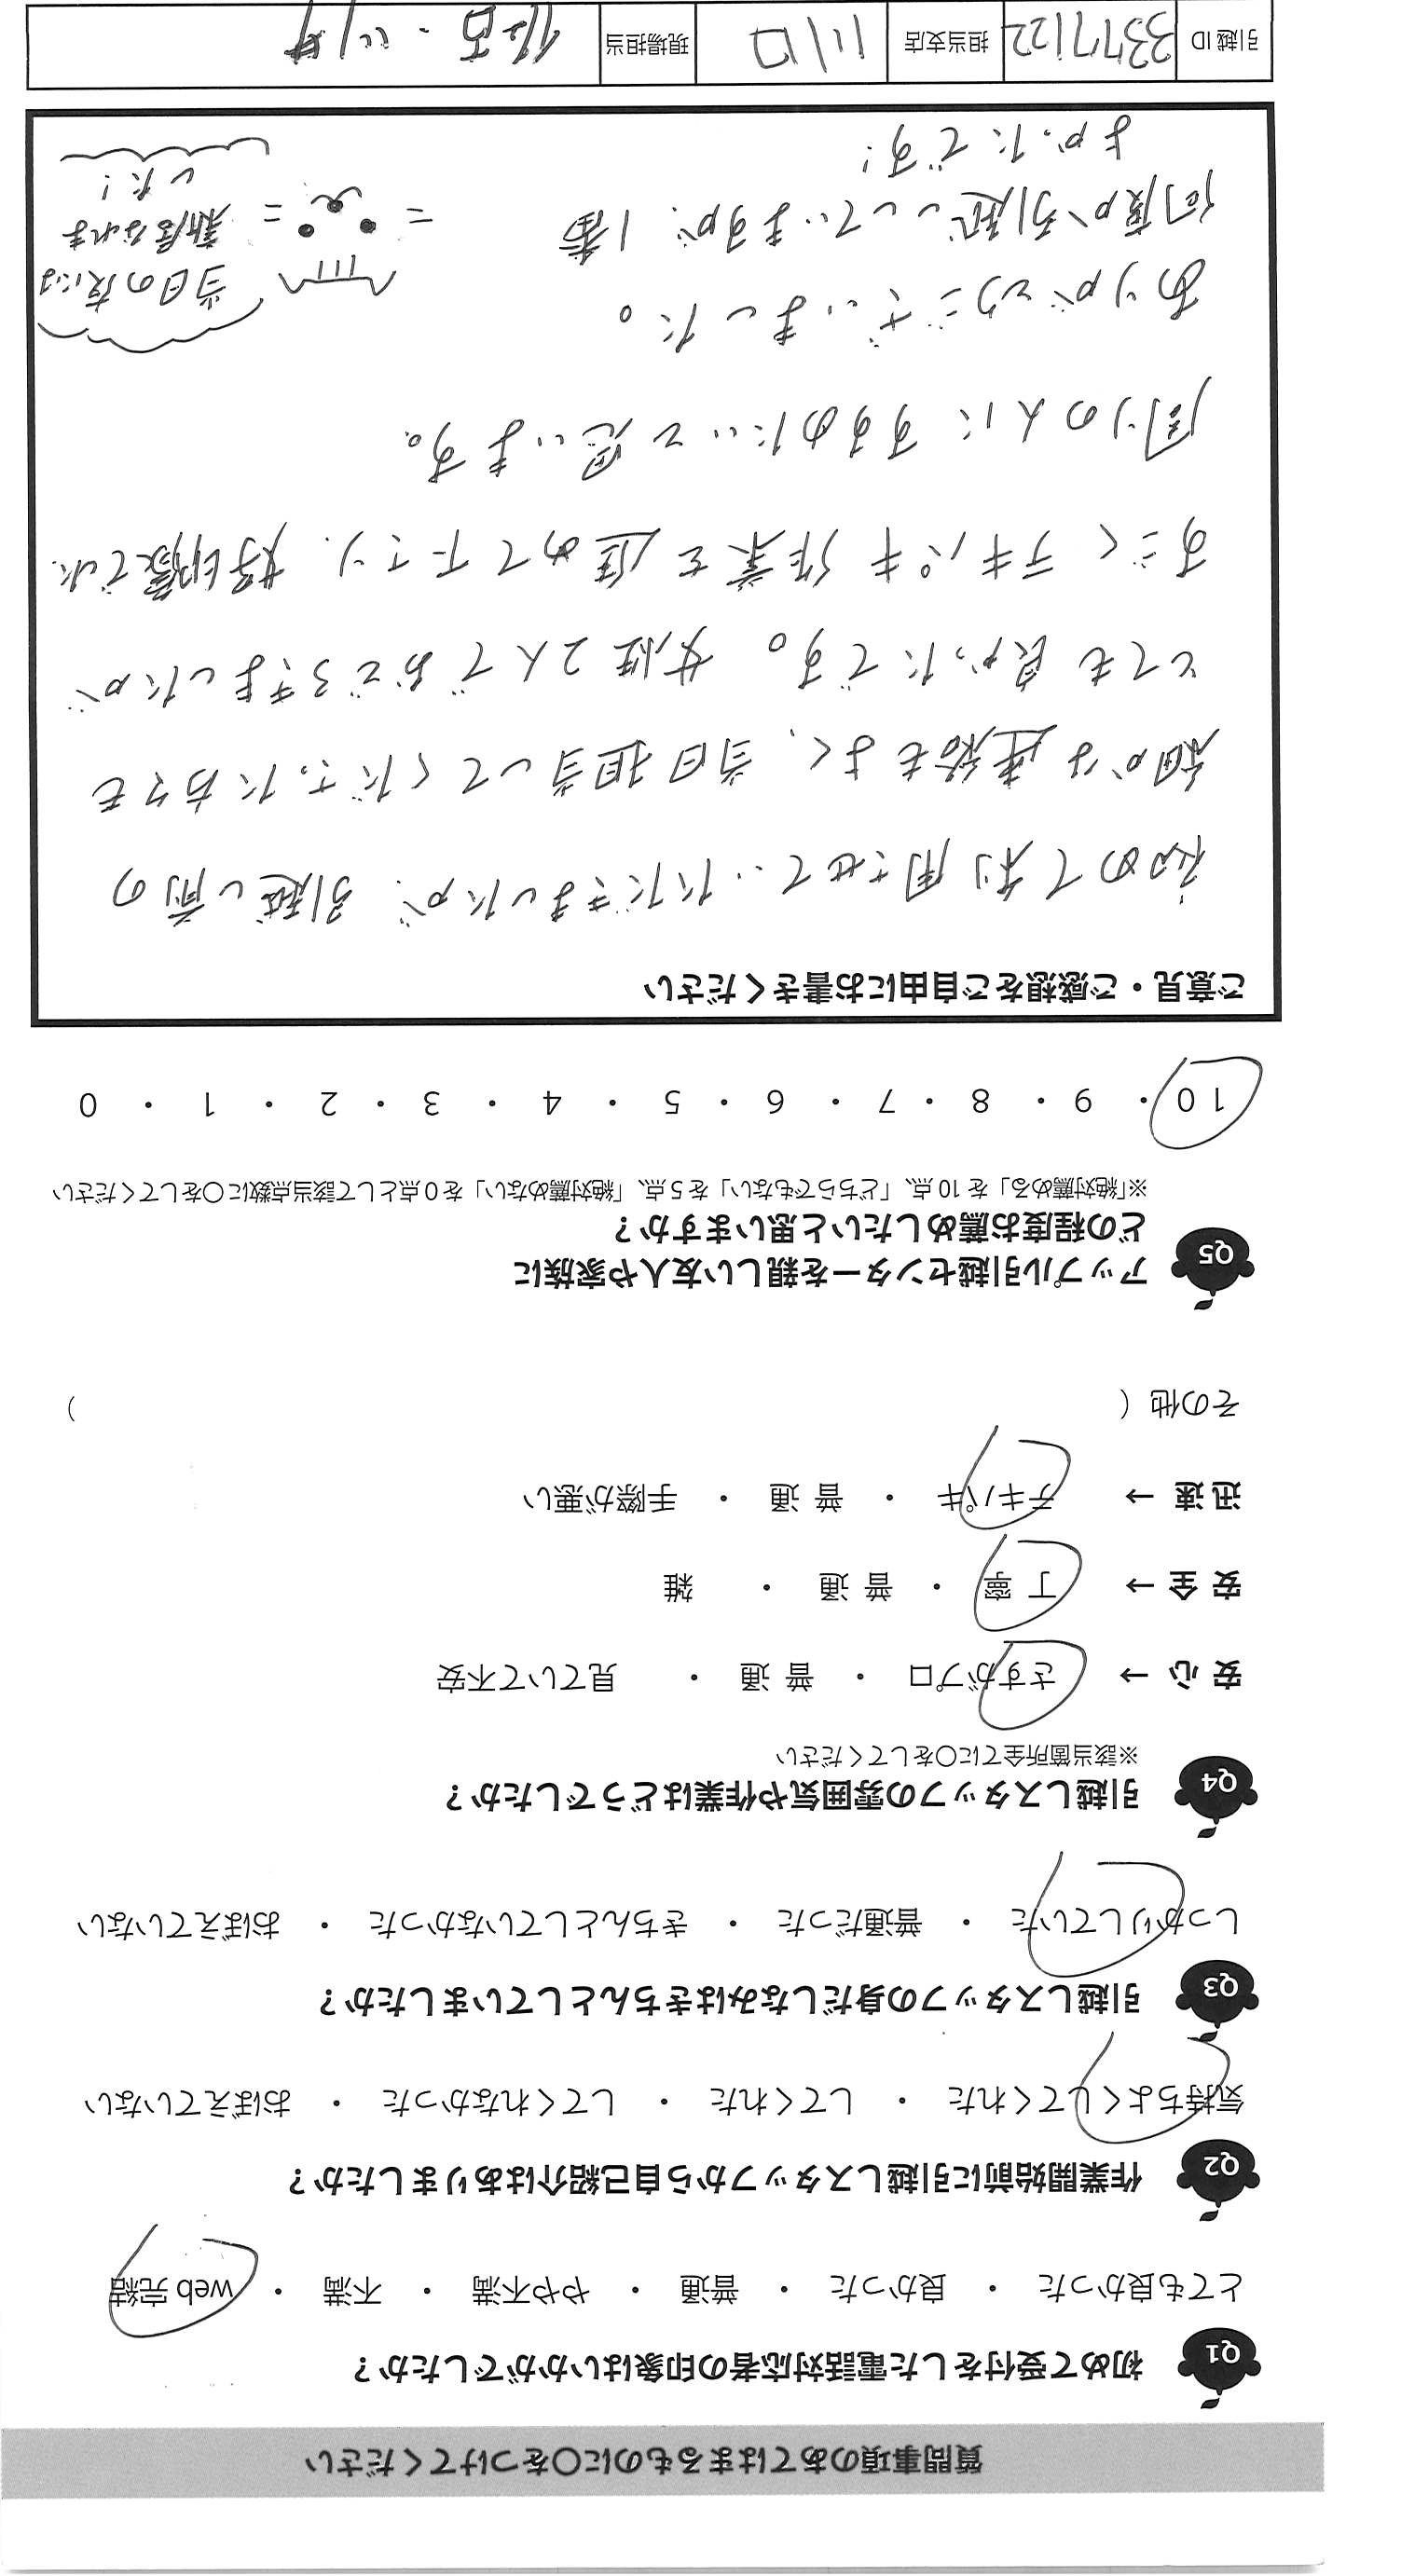 質問事項のあてはまるものに〇をつけてください
Q1 初めて受付をした電話対応者の印象はいかがでしたか？
とても良かった ・ 良かった ・ 普通 ・ やや不満 ・ 不満 ・ web 完結
Q2 作業開始前に引越しスタッフから自己紹介はありましたか？
気持ちよくしてくれた ・ してくれた ・ してくれなかった ・ おぼえていない
Q3 引越しスタッフの身だしなみはきちんとしていましたか？
しっかりしていた ・ 普通だった ・ きちんとしていなかった ・ おぼえていない
Q4 引越しスタッフの雰囲気や作業はどうでしたか？
※該当箇所全てに〇をしてください
安 心 → さすがプロ ・ 普 通 ・ 見ていて不安
安 全 → 丁 寧 ・ 普 通 ・ 雑
迅 速 → テキパキ ・ 普 通 ・ 手際が悪い
その他（ ）
Q5 アップル引越センターを親しい友人や家族に
どの程度お薦めしたいと思いますか？
※「絶対薦める」を 10 点、「どちらでもない」を 5 点、「絶対薦めない」を 0 点として該当点数に〇をしてください
10 ・ 9 ・ 8 ・ 7 ・ 6 ・ 5 ・ 4 ・ 3 ・ 2 ・ 1 ・ 0
ご意見・ご感想をご自由にお書きください
初めて利用させていただきましたが、引越し前の
細かな連絡もよく、当日担当してくださったお方々も
とても良かったです。女性2人でおどろきましたが
すごくテキパキ作業を進めて下さり、好印象でした
周りの人にすすめたいと思います。
ありがとうございました。
何度か引越ししていますが、1番
よかったです！
当日の夜には
新居なれま
した！
引越 ID 3377122 担当支店 川口 現場担当